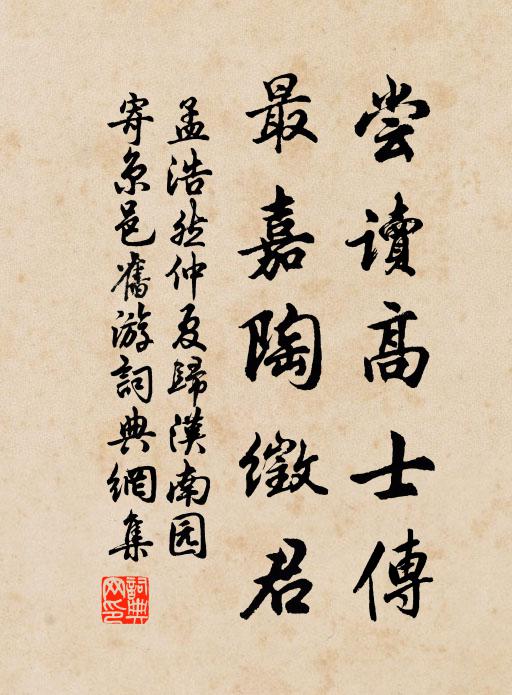 尝讀高士傳
最嘉陶徵君
孟浩然仲夏歸漢南园
寄京邑舊游詞典網集
詞典网印